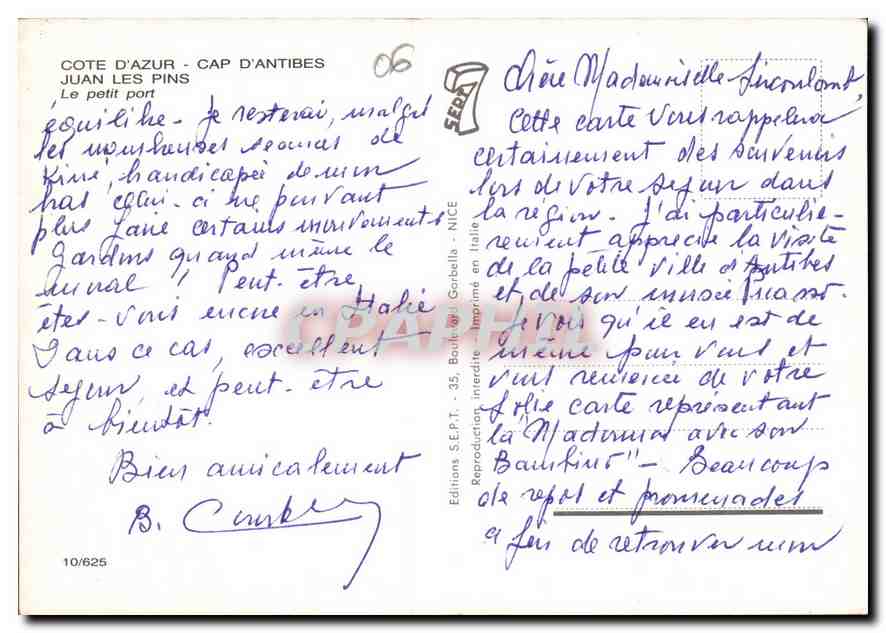 COTE D'AZUR - CAP D'ANTIBES
JUAN LES PINS
Le petit port
06
SEPT
Chère Mademoiselle
Cette carte vous rappelera
certainement des souvenirs
lors de votre sejour dans
la région. J'ai particuliè-
rement apprecié la visite
de la petite ville d'Antibes
et de son musée Picasso.
Je vois qu'il en est de
même pour vous et
vous remercie de votre
jolie carte représentant
la "Madonna avec son
Bambino" - Beaucoup
de repos et promenades
a fin de retrouver mon
équilibre. Je resterai, malgré
les nombreuses seances de
Kiné, handicapée de mon
bras celui-ci ne pouvant
plus faire certains mouvements
Gardons quand même le
moral! Peut-être
êtes-vous encore en Italie
Dans ce cas, excellent
sejour et peut-être
à bientôt.
Bien amicalement
B.
10/625
Editions S.E.P.T. - 35, Boulevard Gorbella - NICE
Reproduction interdite - Imprimé en Italie
CPAPHIL